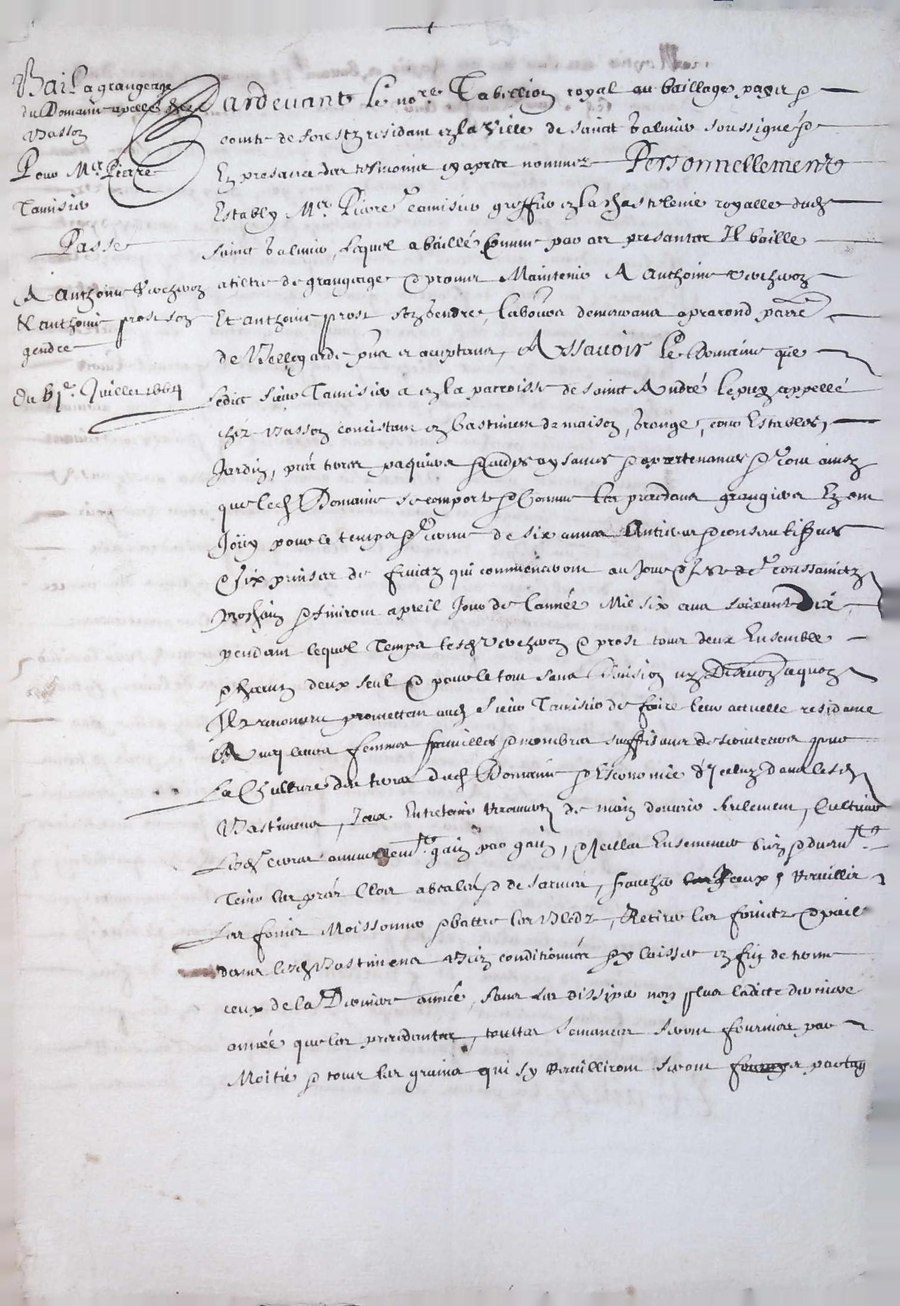 Bail a grangeage
du Domaine apelle chez
Vasson
Pour Mre Pierre
Tamisier
Passé
A Anthoine
& anthoine prost son
gendre
Du Juillet 1664
Pardevant le nore Tabellion royal au bailliage pays &
comte de forestz residant en la Ville de sainct Galmier soussigné &
En presance des tesmoins cy apres nommez Personnellement
Estably Mre Pierre Tamisier greffier en la chastelenie royalle dudt
sainct Galmier, lequel a baillé comme par ces presantes Il baille
a tiltre de grangeage & promet Maintenir A Anthoine
Et anthoine prost son gendre, laboureurs demeurans
de Bellegarde pnts et aceptans, Assavoir Le Domaine que
ledict sieur Tamisier a en la parroisse de sainct André le puy appellé
chez Vasson consistant en bastiment de maison, grange, cour Estables,
Jardin, prés terres paquiers aysances & apartenances & tout ainsy
que ledt Domaine se comporte & comme les precedans grangiers En ont
Jouy pour le temps & terme de six années Antieres & consecutifves
& six prinses de fruictz qui commenceront au Jour & feste de Toussainctz
prochain & finiront a pareil Jour de l'année Mil six cens soixante Dix,
pendant lequel Temps lesdts & prost tous deux Ensemble
& chacun deux seul & pour le tout sans Division ny Discution a quoy
Ilz renoncent promettent audt sieur Tamisier de faire leur actuelle residance
Avec leurs femmes familles & nombre suffisant de pour
La Culture des terres dudt Domaine & Economie d'Icelluy dans lesdts
Bastiments, Iceux Entretenir de main d'ouvrier seulement, Cultiver
Lesdts terres annuellemt gain par gain, & Icelles Ensemencer bien & duemt
Tenir les prés clos & de, faucher Iceux, Recuillir
Les foins Moissonner & battre les Bledz, Retirer les foins & paille
dans lesdts Bastimens bien conditionnés & y laisser en fin de terme
ceux de la Derniere année, sans les dissiper non plus ladicte derniere
année que les precedantes, touttes semances seront fournies par
Moitié & tous les grains qui sy Recuilliront seront partag